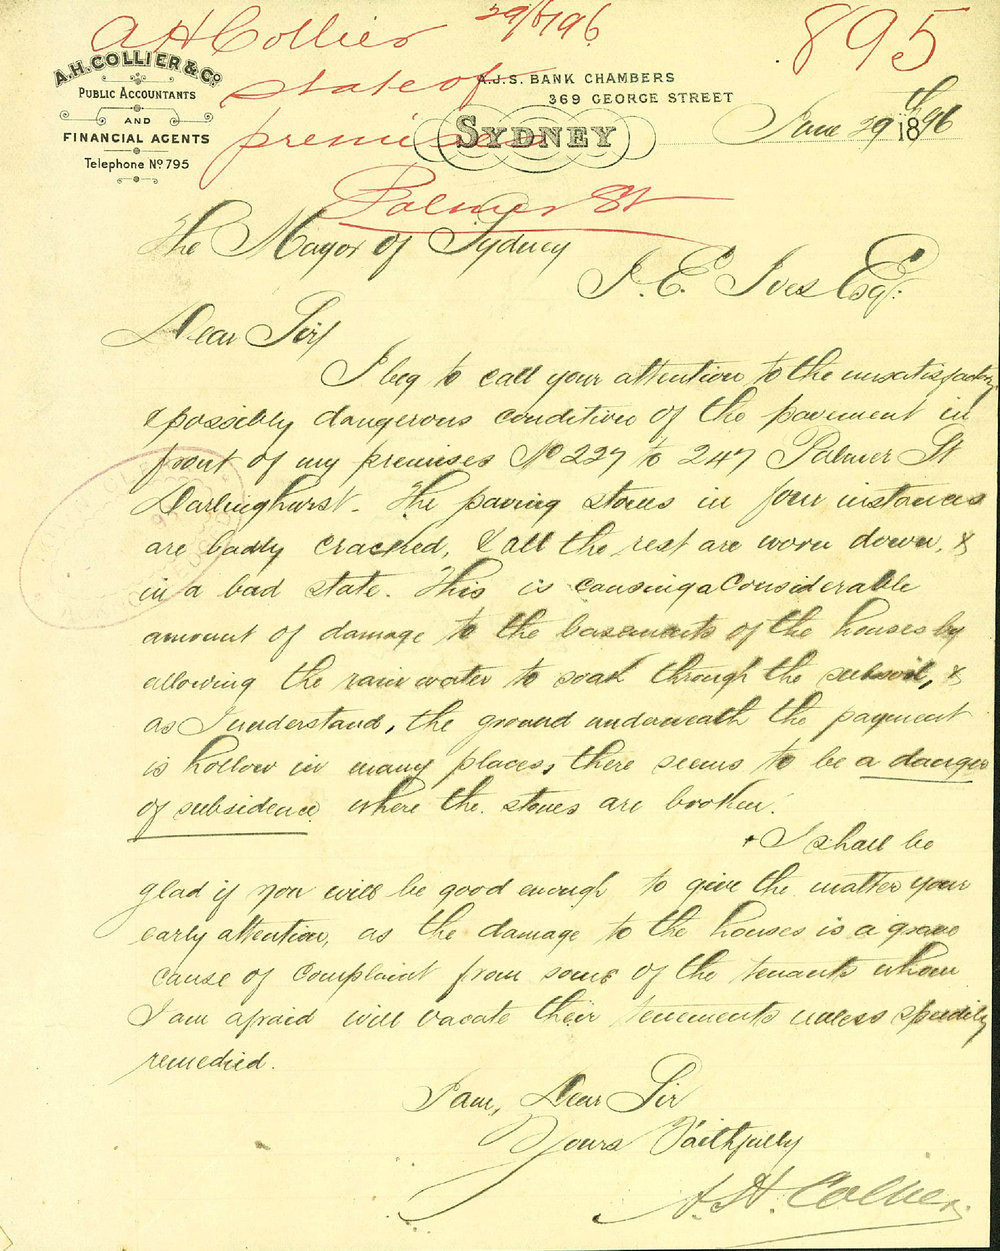 A H Collier 29/6/96
895
state of
premises
Palmer St
A.H. COLLIER & Co
PUBLIC ACCOUNTANTS
AND
FINANCIAL AGENTS
Telephone No 795
A.J.S. BANK CHAMBERS
369 GEORGE STREET
SYDNEY
June 29th 1896
The Mayor of Sydney
I. E. Ives Esq:
Dear Sir/
I beg to call your attention to the unsatisfactory
& possibly dangerous condition of the pavement in
front of my premises No 227 to 247 Palmer St
Darlinghurst. The paving stones in four instances
are badly cracked, & all the rest are worn down, &
in a bad state. This is causing a considerable
amount of damage to the basements of the houses by
allowing the rain water to soak through the subsoil, &
as I understand, the ground underneath the payment
is hollow in many places, there seems to be a danger
of subsidence where the stones are broken.
I shall be
glad if you will be good enough to give the matter your
early attention, as the damage to the houses is a grave
cause of complaint from some of the tenants whom
I am afraid will vacate their tenements unless speedily
remedied.
I am, Dear Sir
Yours Faithfully
A. H. Collier